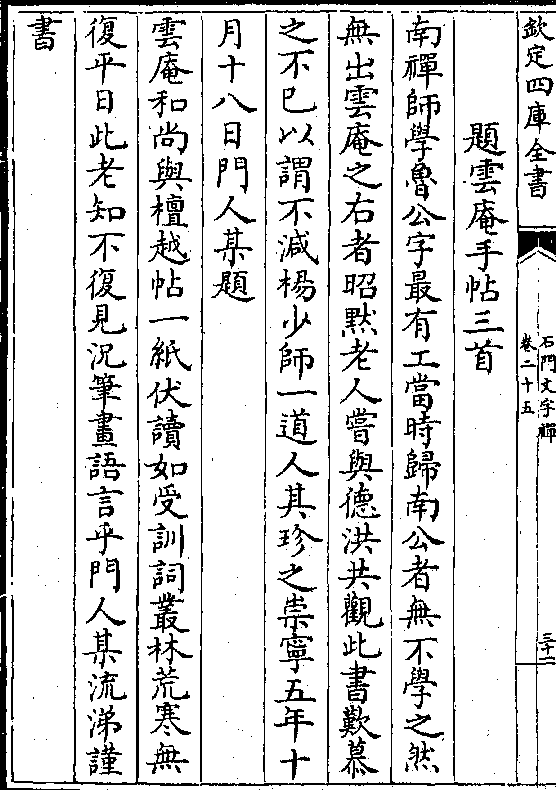 欽定四庫全書
石門文字禪
卷二十五
三十一
題雲庵手帖三首
南禪師學魯公字最有工當時歸南公者無不學之然
無出雲庵之右者昭黙老人嘗與德洪共觀此書歎慕
之不已以謂不減楊少師一道人其珍之崇寧五年十
月十八日門人某題
雲庵和尚與檀越帖一紙伏讀如受訓詞叢林荒寒無
復平日此老知不復見況筆畫語言乎門人某流涕謹
書